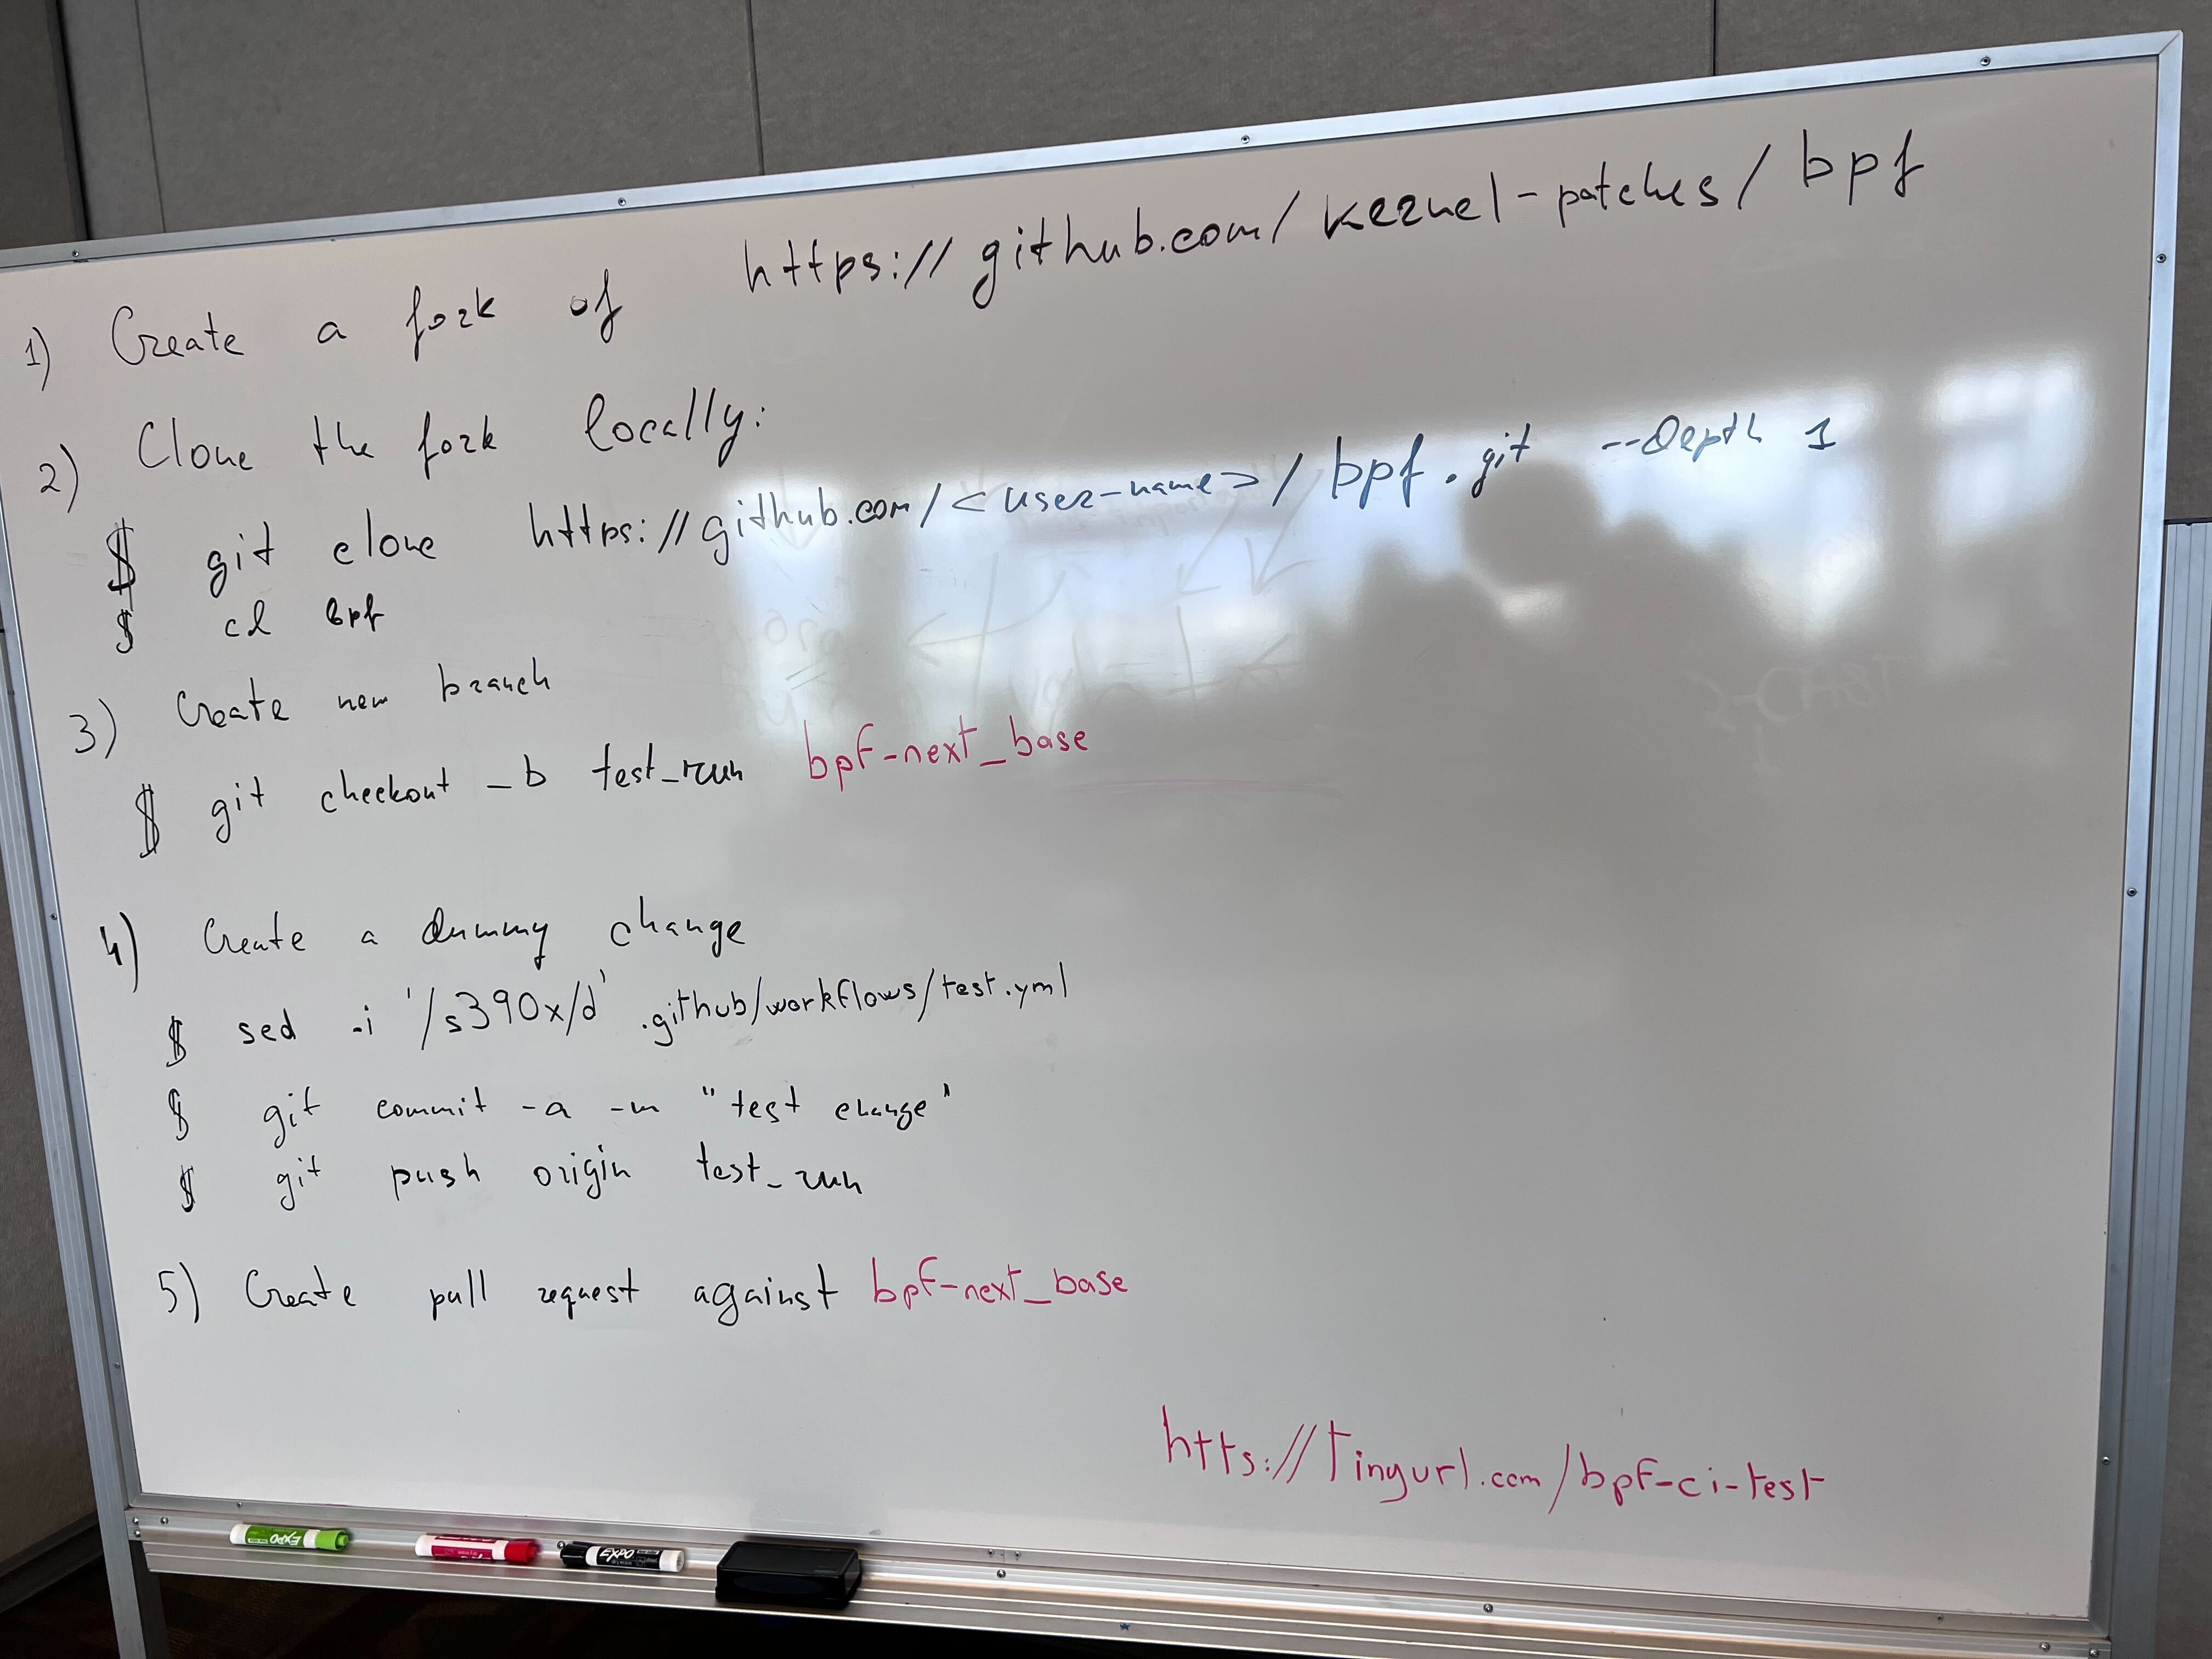 1) Create a fork of https://github.com/kernel-patches/bpf
2) Clone the fork locally:
$ git clone https://github.com/<user-name>/bpf.git --depth 1
$ cd bpf
3) Create new branch
$ git checkout -b test_run bpf-next_base
4) Create a dummy change
$ sed -i '/s390x/d' .github/workflows/test.yml
$ git commit -a -m "test change"
$ git push origin test_run
5) Create pull request against bpf-next_base
htts://tinyurl.com/bpf-ci-test
EXPO
EXPO